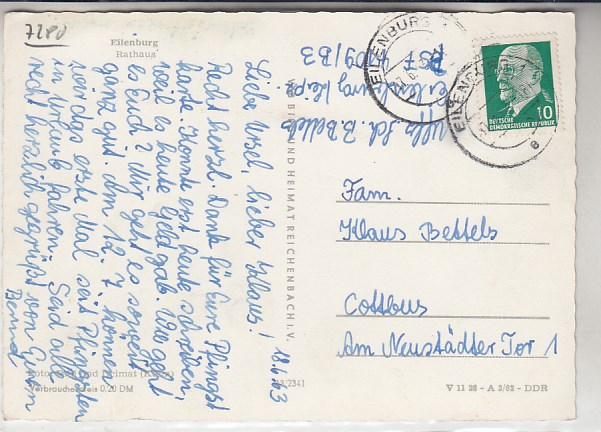 7280
Eilenburg
Rathaus
Liebe Ursel, lieber Klaus!
18.6.63
Recht herzl. Dank für Eure Pfingst
karte. Konnte erst heute schreiben,
weil es heute Geld gab. Wie geht
es Euch? Mir geht es soweit
ganz gut. Am 12. 7 können
wir das erste Mal seit Pfingsten
in Urlaub fahren. Seid alle
recht herzlich gegrüßt von Eurem
Bernd
Foto: Bild und Heimat
Verbraucherpreis 0,20 DM
VEB BILD UND HEIMAT REICHENBACH I. V.
Uffz. Sch. B. Bettels
Eilenburg
PSF 4709/B3
EILENBURG
EILENBURG
10
DEUTSCHE
DEMOKRATISCHE REPUBLIK
e
Fam.
Klaus Bettels
Cottbus
Am Neustädter Tor 1
V 11 28 - A 3/62 - DDR